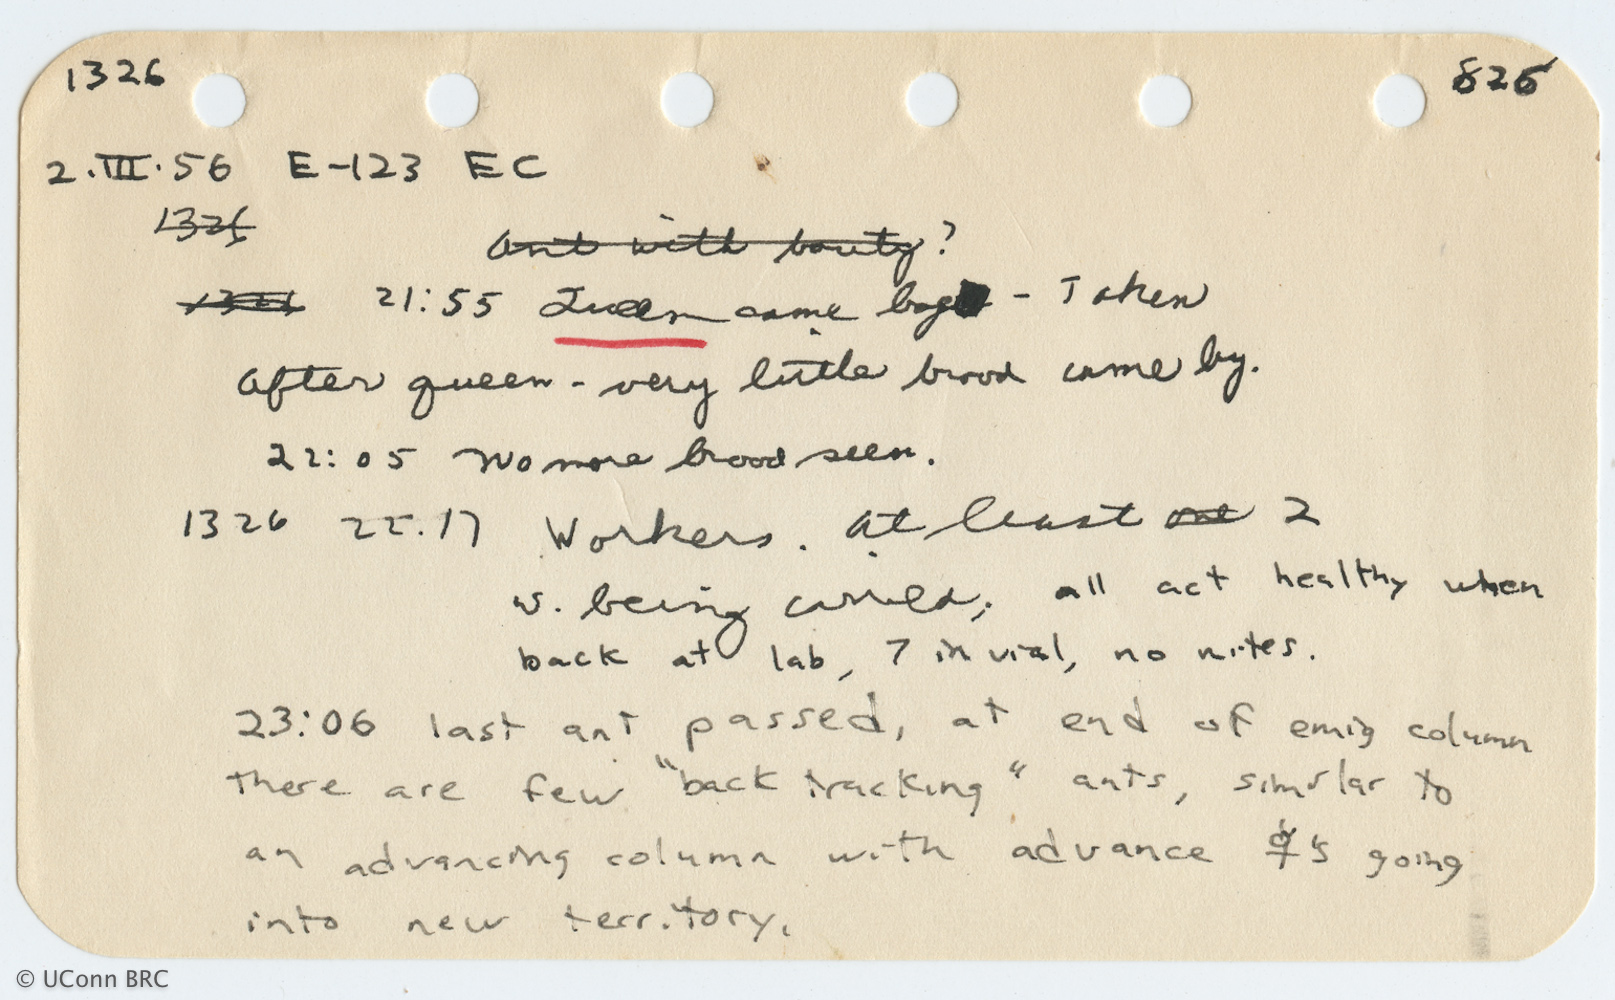 1326 826
2.III.56 E-123 EC
1326
Ant with booty?
1326 21:55 Queen came by - Taken
After queen - very little brood came by.
22:05 No more brood seen.
1326 22.17 Workers. At least one 2
w. being carried; all act healthy when
back at lab, 7 in vial, no mites.
23:06 last ant passed, at end of emig column
there are few "back tracking" ants, similar to
an advancing column with advance ☿'s going
into new territory.
© UConn BRC